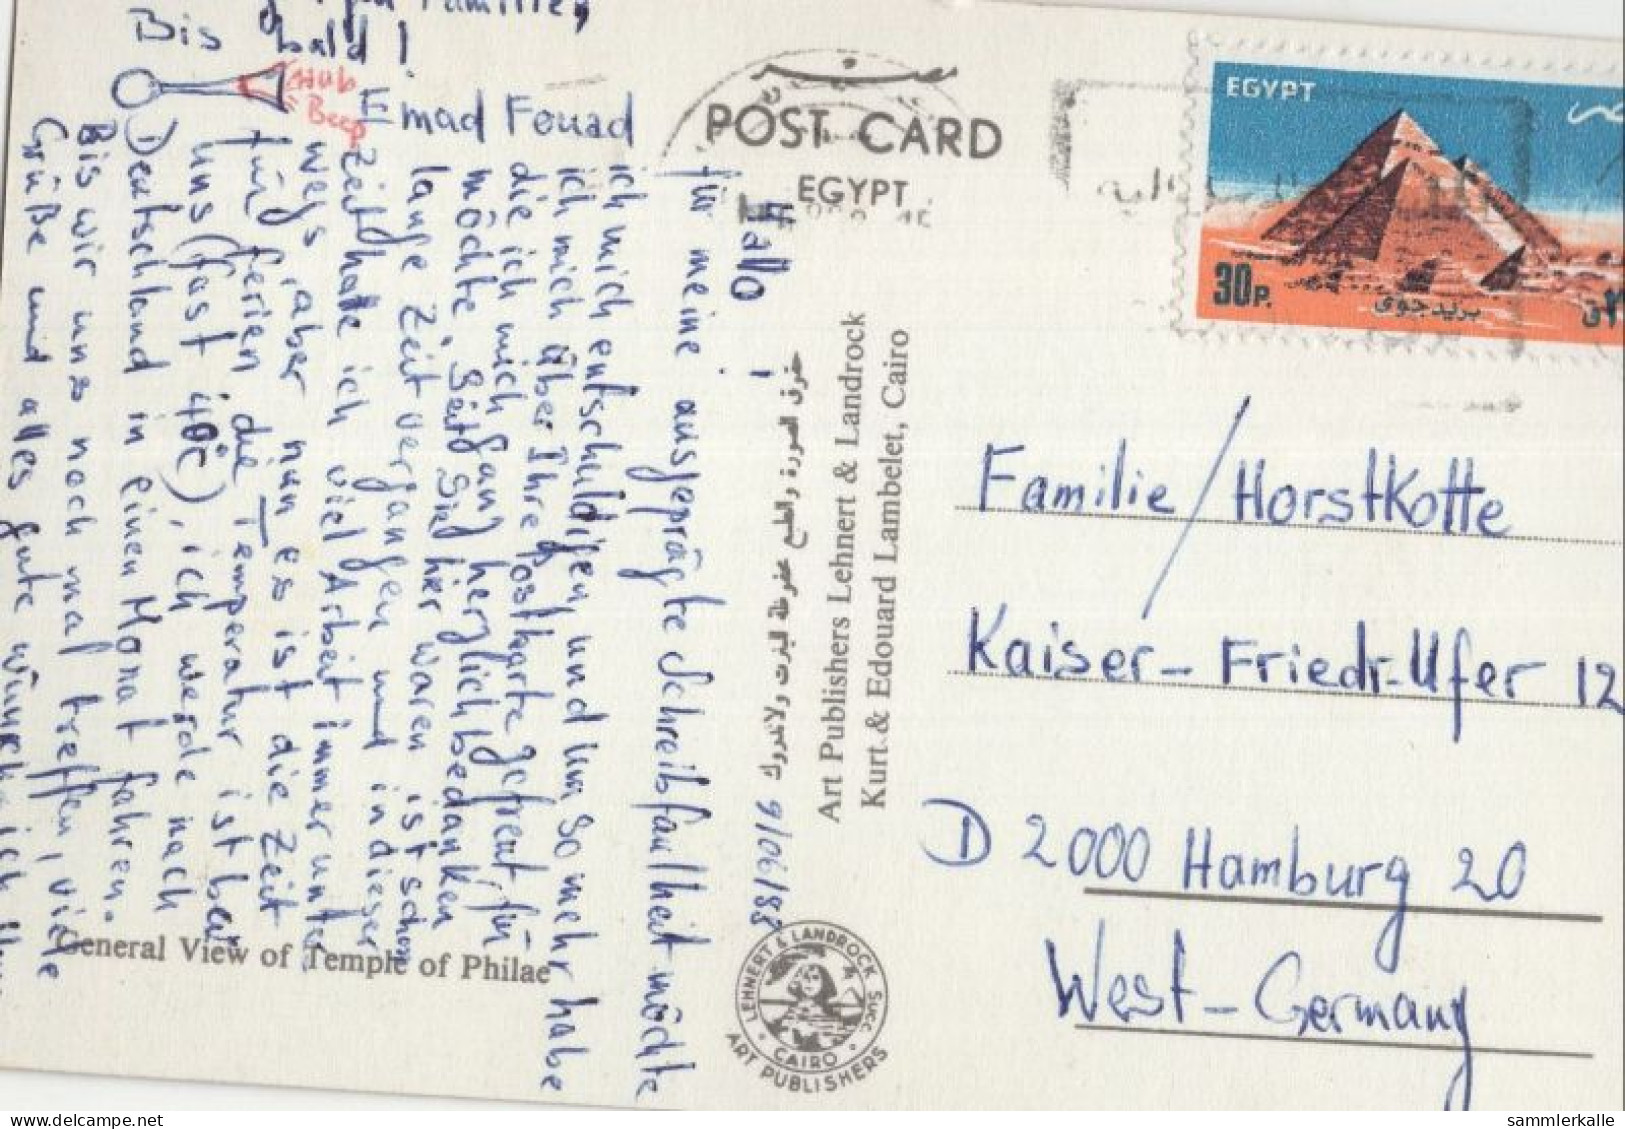 POST CARD
EGYPT
EGYPT
30P.
بريد جوى
9/06/88
Hallo !
für meine ausgeprägte Schreibfaulheit möchte
ich mich entschuldigen, und um so mehr habe
ich mich über Ihre Postkarte gefreut für
die ich mich ganz herzlich bedanken
möchte. Seit Sie hier waren ist schon
lange Zeit vergangen und in dieser
Zeit habe ich viel Arbeit immer unter
wegs, aber nun es ist die Zeit
für ferien die Temperatur ist bei
uns (fast 40°C), ich werde nach
Deutschland in einen Monat fahren.
Bis wir uns noch mal treffen, viele
Grüße und alles gute wünsche ich
Familie,
Bis bald !
Emad Fouad
Hub
Beep
General View of Temple of Philae
حقوق الصورة والطبع محفوظة لينرت ولاندروك
Art Publishers Lehnert & Landrock
Kurt & Edouard Lambelet, Cairo
LEHNERT & LANDROCK SUCC.
CAIRO
ART PUBLISHERS
Familie / Horstkotte
Kaiser-Friedr-Ufer 12
D 2000 Hamburg 20
West-Germany
sammlerkalle